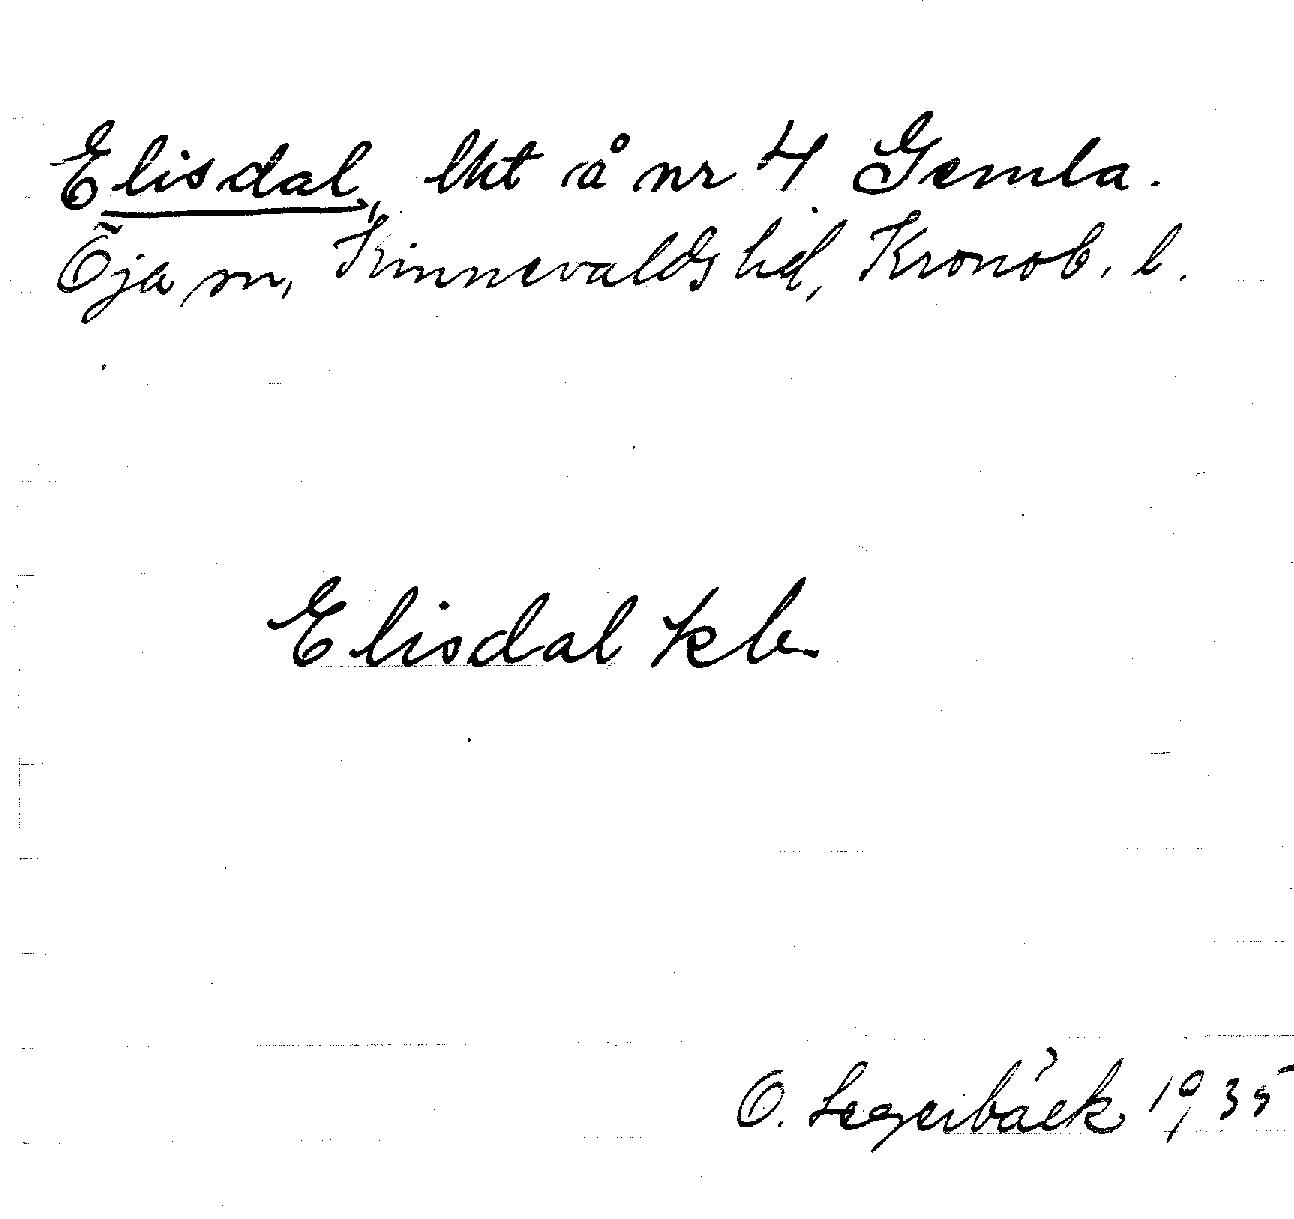 Elisdal, lht å nr 4 Gemla.
Öja sn, Kinnevalds hd, Kronob. l.
Elisdal kb.
O. Segerbäck 1935